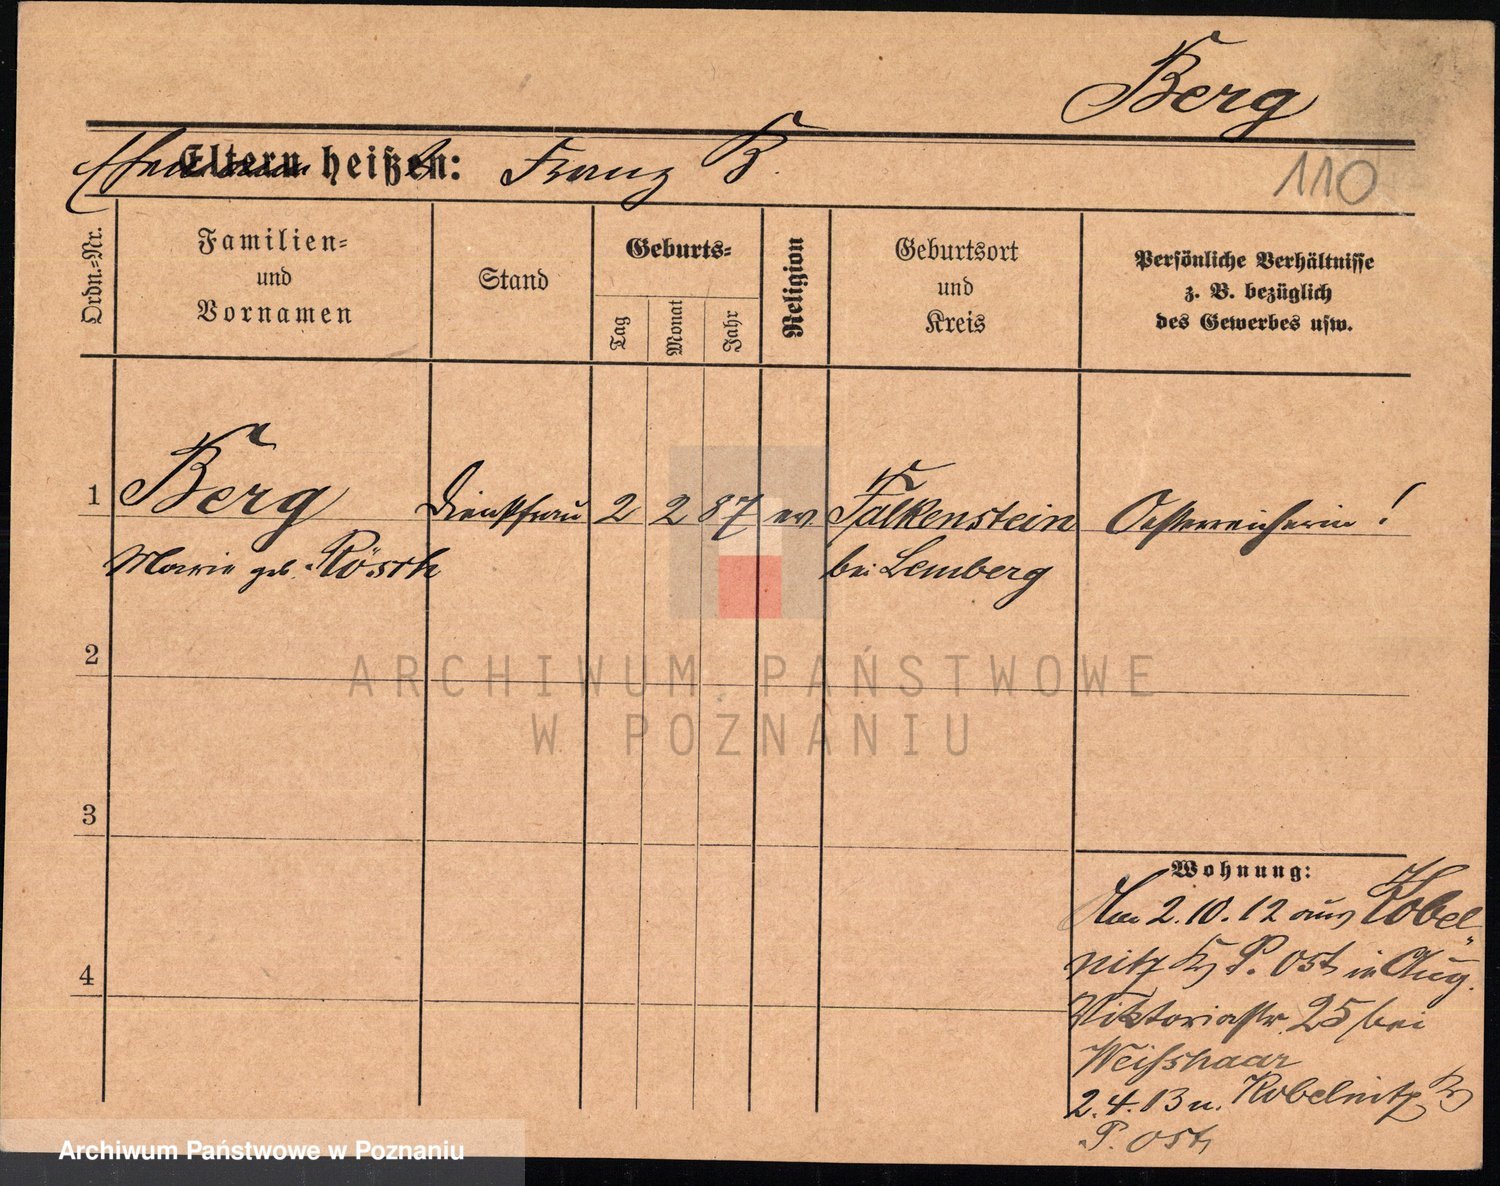 Berg
Eltern heißen: Franz B.
110
Ordn.=Nr.
Familien=
und
Vornamen
Stand
Geburts=
Tag
Monat
Jahr
Religion
Geburtsort
und
Kreis
Persönliche Verhältnisse
z. B. bezüglich
des Gewerbes usw.
1 Berg Dienstfrau 2 2 87 ev. Falkenstein Oesterreicherin!
Marie geb. Rösch bei Lemberg
2
3
4
Wohnung:
2.10.12 aus Kobel-
nitz Krs P. Ost in Aug.
Viktoriastr. 25 bei
Weißhaar
2.4.13 n. Kobelnitz Krs
P. Ost
ARCHIWUM PAŃSTWOWE
W POZNANIU
Archiwum Państwowe w Poznaniu